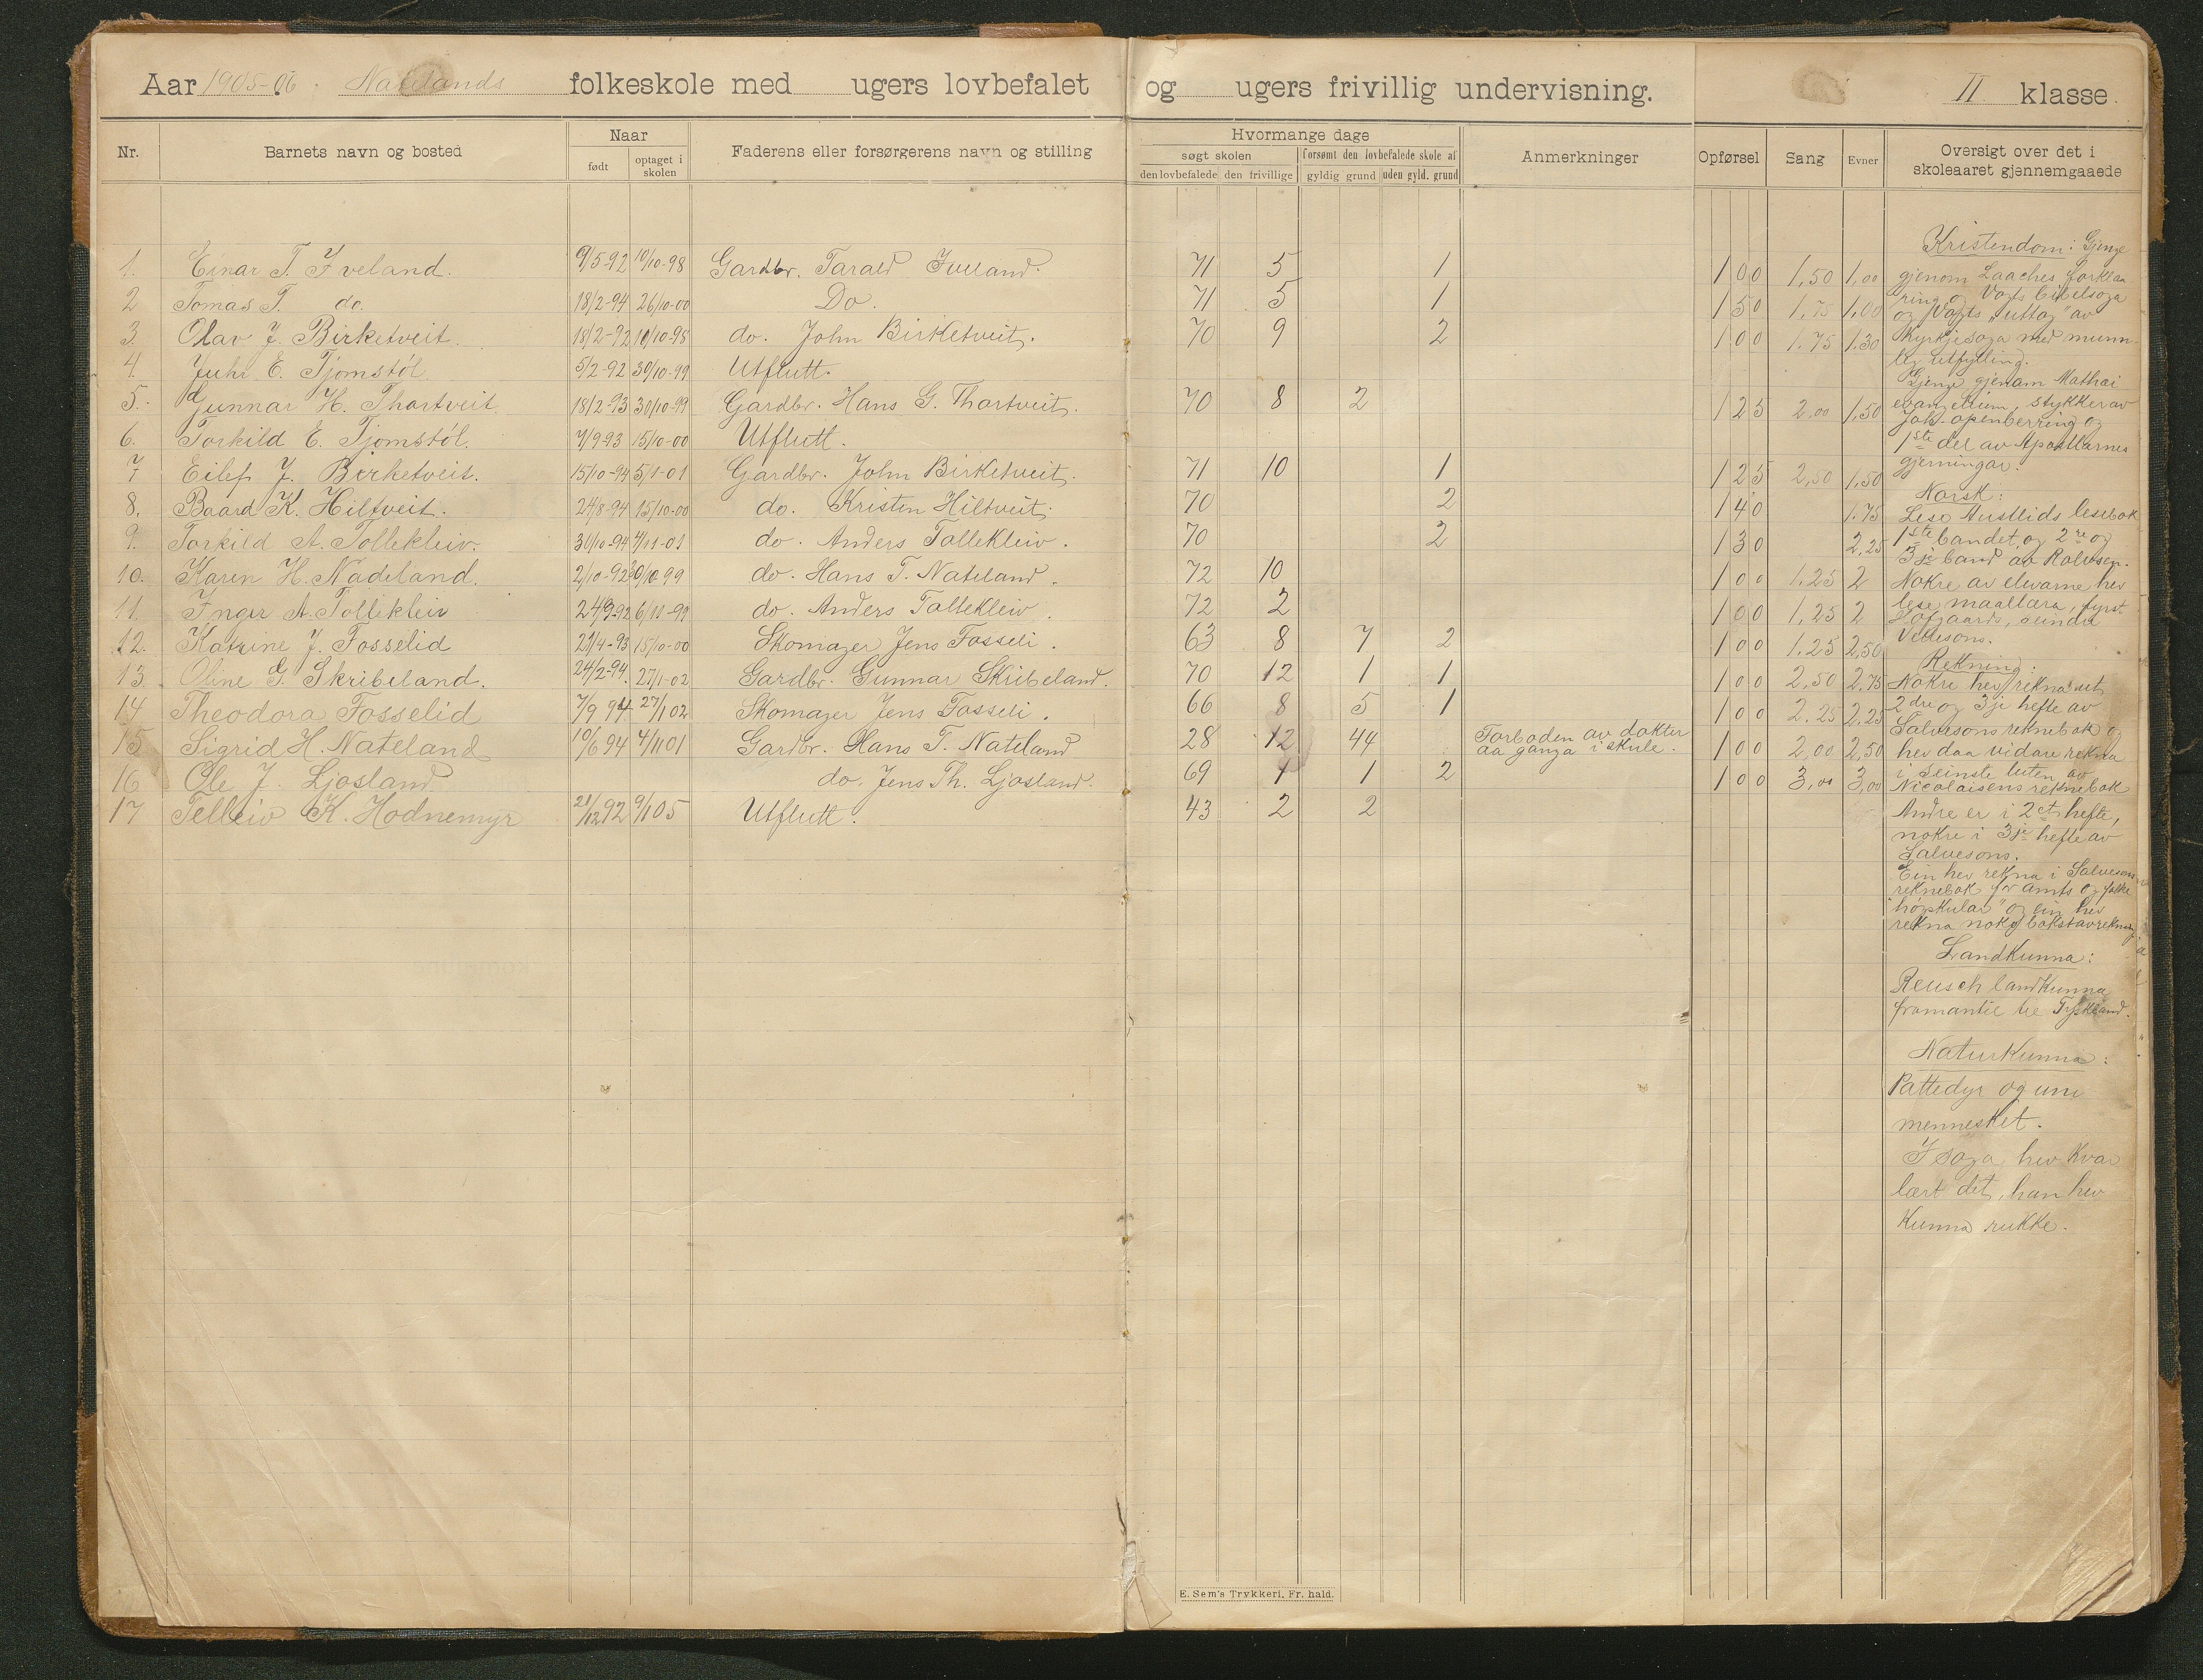 Aar 1905-06. Natelands folkeskole med ugers lovbefalet og ugers frivillig undervisning. II klasse.
Nr. Barnets navn og bosted Naar Faderens eller forsørgerens navn og stilling Hvormange dage Anmerkninger Opførsel Sang Evner Oversigt over det i skoleaaret gjennemgaaede
født optaget i skolen søgt skolen forsømt den lovbefalede skole af
den lovbefalede den frivillige gyldig grund uden gyld. grund
1. Einar T. Iveland. 9/5-92 10/10-98 Gardbr. Tarald Iveland. 71 5 1 1 00 1,50 1,00
2 Tomas T. do. 18/2-94 26/10-00 Do. 71 5 1 1 50 1,75 1,00
3. Olav J. Birketveit. 18/2-92 10/10-98 do. John Birketveit. 70 9 2 1 00 1.75 1.30
4. E. Tjomstøl 5/2-92 30/10-99 Utflutt.
5. Gunnar H. Thortveit. 18/2-93 30/10-99 Gardbr. Hans G. Thortveit. 70 8 2 1 25 2,00 1,50
6. Torkild E. Tjomstøl. 7/9-93 15/10-00 Utflutt.
7 Eilef J. Birketveit. 15/10-94 5/11-01 Gardbr. John Birketveit. 71 10 1 1 25 2,50 1,50
8. Baard K. Hiltveit. 24/8-94 15/10-00 do. Kristen Hiltveit. 70 2 1 40 1.75
9. Torkild A. Tollekleiv. 30/10-94 4/11-01 do. Anders Tollekleiv. 70 2 1 30 2,25
10. Karen H. Nadeland. 2/10-92 30/10-99 do. Hans T. Nateland. 72 10 1 00 1.25 2
11. Inger A. Tollekleiv 24/9-92 6/11-99 do. Anders Tollekleiv. 72 2 1 00 1,25 2
12. Katrine J. Fosselid 21/4-93 15/10-00 Skomager Jens Fosseli. 63 8 7 2 1 00 1.25 2,50
13. Oline G. Skribeland. 24/2-94. 27/1-02 Gardbr. Gunnar Skribeland. 70 12 1 1 1 00 2,50 2,75
14 Theodora Fosselid 7/9 94 27/1 02 Skomager Jens Fosseli. 66 8 5 1 1 00 2,25 2,25
15 Sigrid H. Nateland 10/6 94 4/11 01 Gardbr. Hans T. Nateland 28 12 44 Forboden av dokter aa ganga i skule. 1 00 2,00 2,50
16 Ole J. Ljosland do. Jens Th. Ljosland. 69 1 1 2 1 00 3,00 3,00
17 Telleiv K. Hodnemyr 21/12 92 9/1 05 Utflutt. 43 2 2
Kristendom: Gjenge
gjenom Laaches forklaa
ring og Vogts bibelsoga
og Vogts "uttog" av
Kyrkjesoga med munn
leg utfylling.
Gjenge gjenom Mathæi
evangelium, stykker av
Joh. openberring og
1ste del av Apostlarnes
gjerningar.
Norsk:
Lese Austlids lesebok
1ste bandet, og 2re og
3je band av Rolvson.
Nokre av elevarne hev
lese maallæra, fyrst
Hofgaards, sundre
Rekning:
Nokre hev rekna ut
2dre og 3je hefte av
Salvesons reknebok og
hev daa vidare rekna
i seinste luten av
Nicolaisens reknebok
Andre er i 2et hefte,
nokre i 3je hefte av
Salvesons.
Ein hev rekna i Salvesons
reknebok for amts og folke
høgskular" og ein hev
rekna noko bokstavrekning
Landkunna:
Reusch landkunna
framantil til Tyskland.
Naturkunna:
Pattedyr og um
mennesket.
I soga hev kvar
lært det, han hev
kunna rukke.
E. Sem's Trykkeri, Fr. hald.